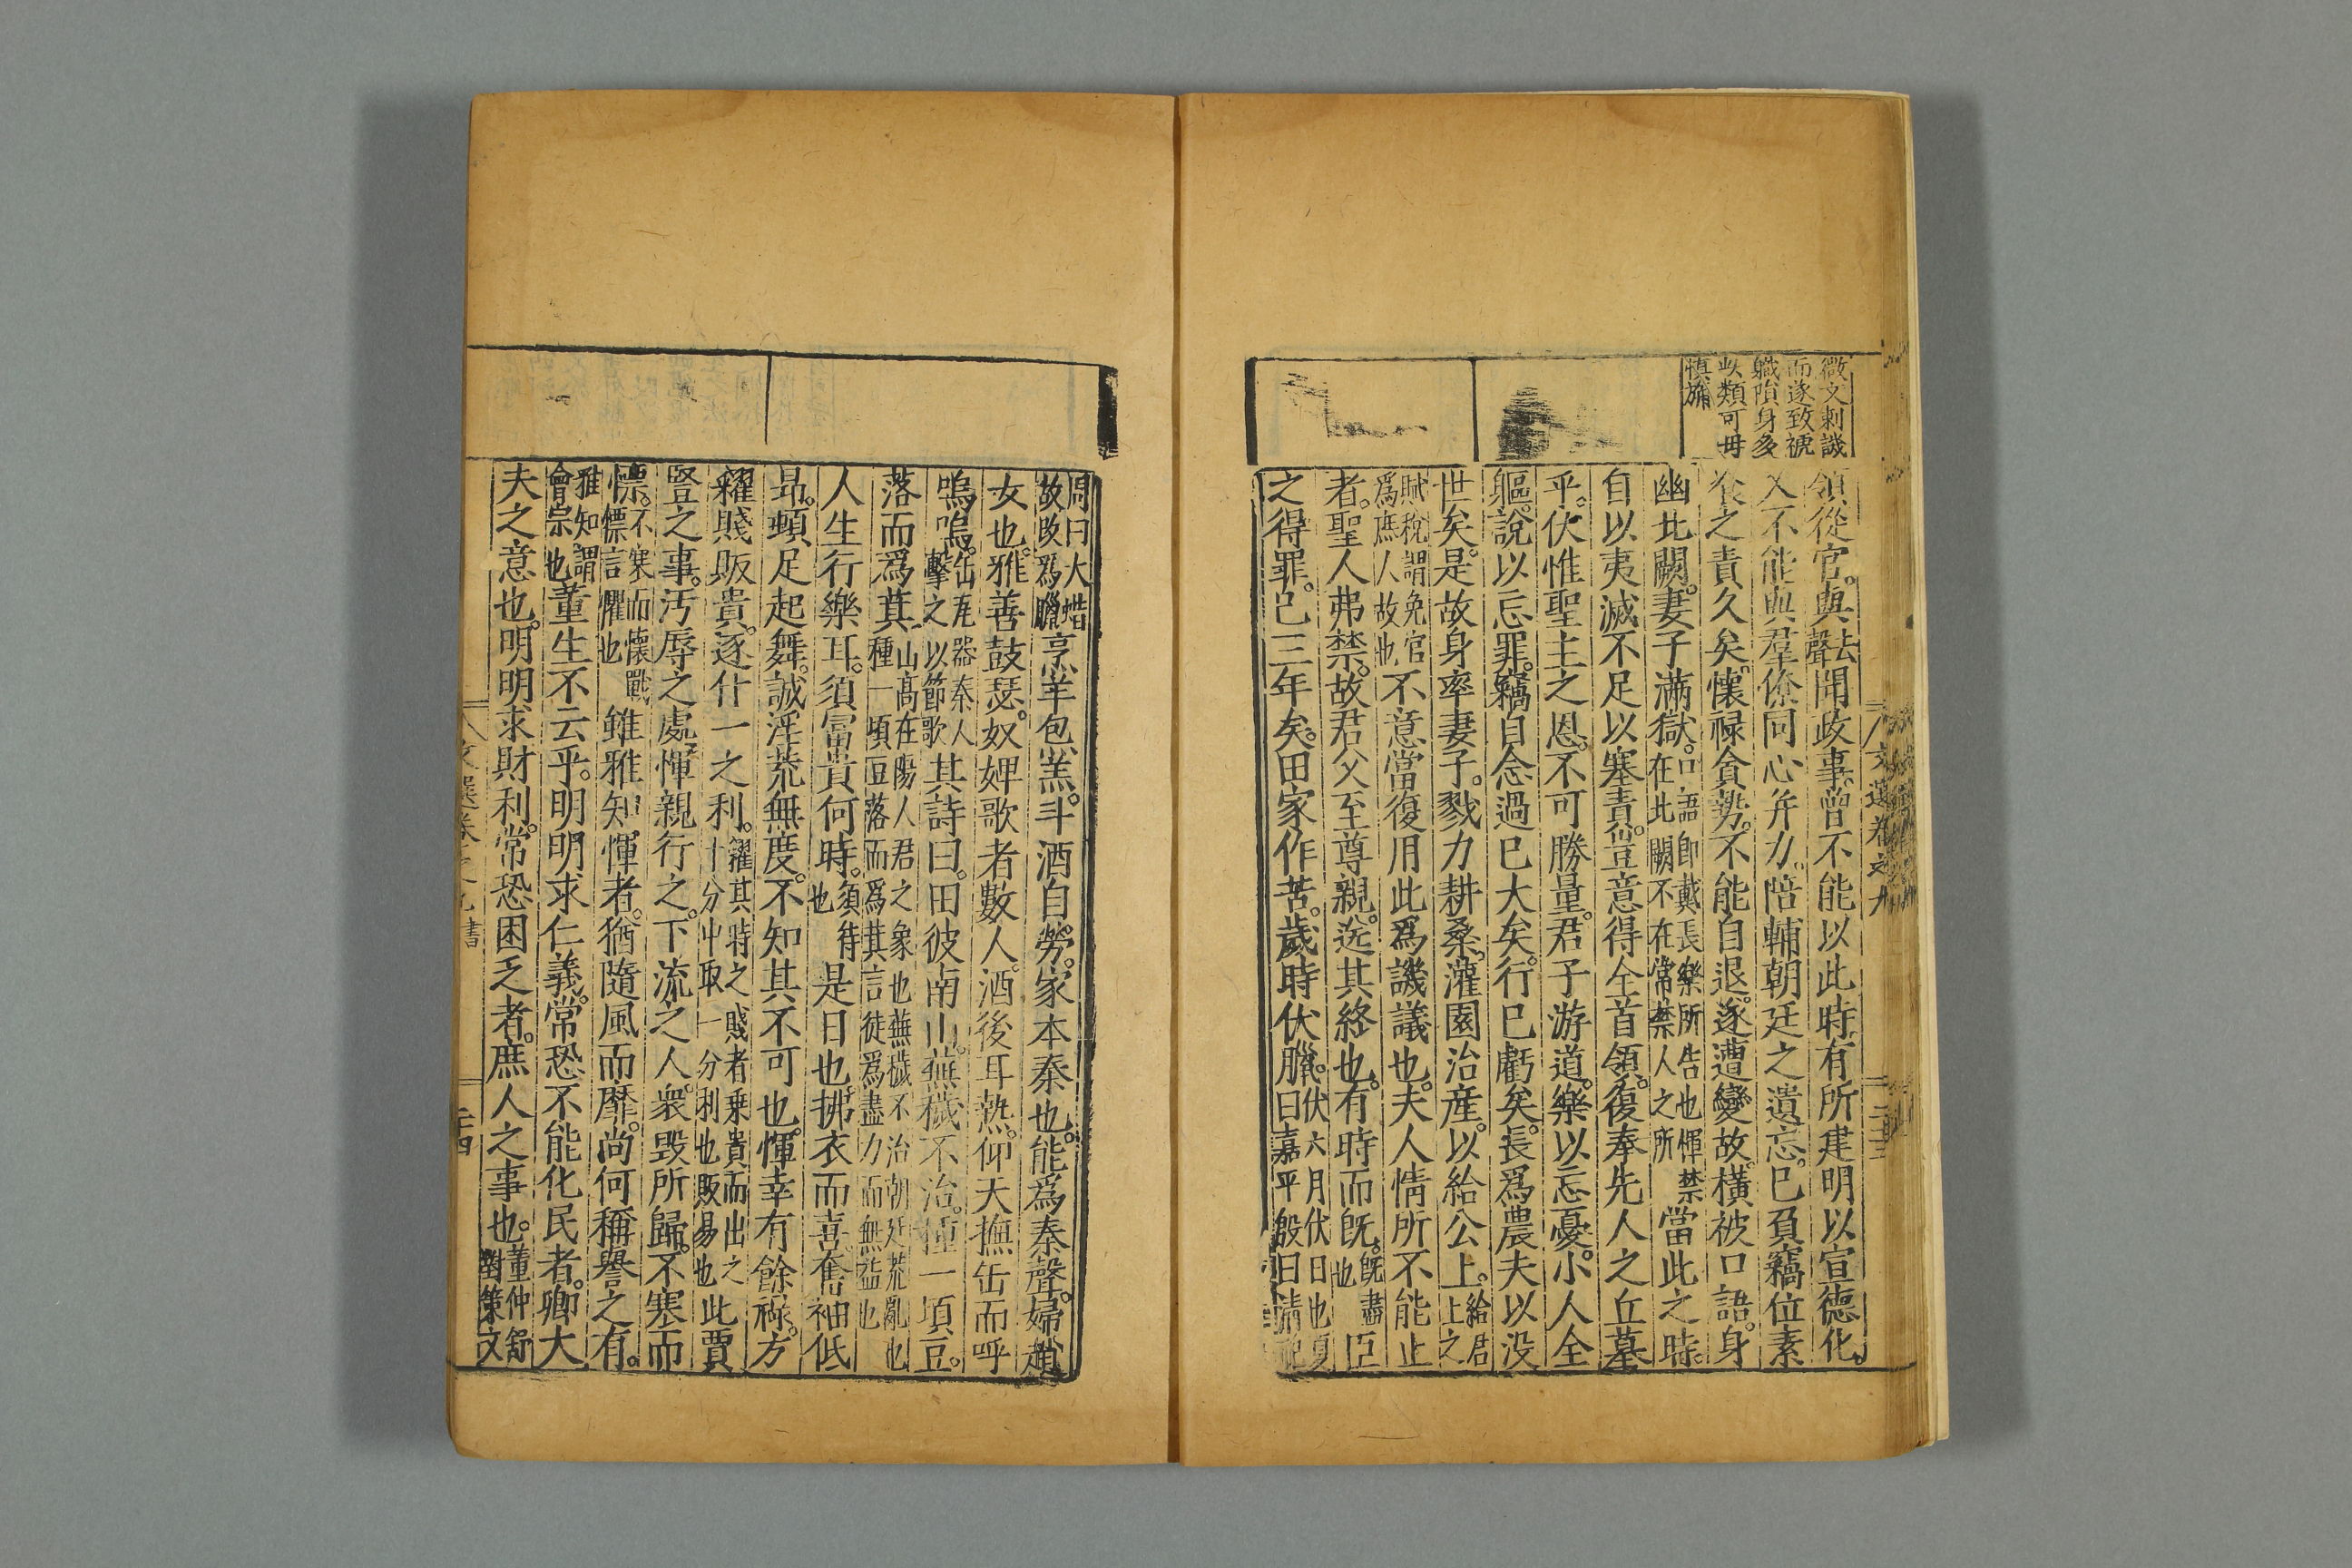 微文刺譏
而遂致褫
職隕身多
此類可毋
慎旃
領從官。與去聲聞政事。曾不能以此時有所建明以宣德化。
又不能與羣僚同心并力。陪輔朝廷之遺忘。已負竊位素
飡之責久矣。懷祿貪勢。不能自退。遂遭變故。橫被口語。身
幽北闕。妻子滿獄。口語即戴長樂所告也惲禁在北闕不在常禁人之所當此之時。
自以夷滅不足以塞責。豈意得全首領。復奉先人之丘墓
乎。伏惟聖主之恩。不可勝量。君子游道。樂以忘憂。小人全
軀。說以忘罪。竊自念過已大矣。行已虧矣。長爲農夫以没
世矣。是故身率妻子。戮力耕桑。灌園治産。以給公上。給君上之
賦稅謂免官爲庶人故也不意當復用此爲譏議也。夫人情所不能止
者。聖人弗禁。故君父至尊親。送其終也。有時而旣。旣盡也臣
之得罪。已三年矣。田家作苦。歲時伏臘。伏六月伏日也夏曰嘉平殷曰清祀
周曰大蜡故改爲臘烹羊炰羔。斗酒自勞。家本秦也。能爲秦聲。婦趙
女也。雅善鼓瑟。奴婢歌者數人。酒後耳熱。仰天撫缶而呼
嗚嗚。缶瓦器秦人擊之以節歌其詩曰。田彼南山。蕪穢不治。種一頃豆。
落而爲萁。山高在陽人君之象也蕪穢不治朝廷荒亂也種一頃豆落而爲萁言徒爲盡力而無益也
人生行樂耳。須富貴何時。須待也是日也。拂衣而喜。奮袖低
昂。頓足起舞。誠淫荒無度。不知其不可也。惲幸有餘祿。方
糴賤販貴。逐什一之利。糴其時之賤者乗貴而出之十分中取一分利也販易也此賈
豎之事。汙辱之處。惲親行之。下流之人。衆毀所歸。不寒而
慄。不寒而懷戰慄言懼也雖雅知惲者。猶隨風而靡。尚何稱譽之有。
雅知謂會宗也董生不云乎。明明求仁義。常恐不能化民者。卿大
夫之意也。明明求財利。常恐困乏者。庶人之事也。董仲舒對策文